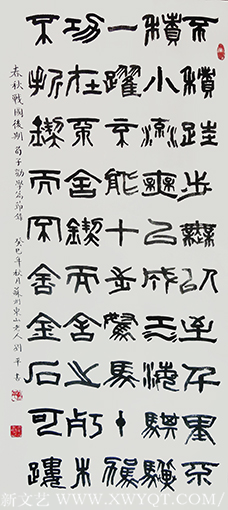 不積跬步無以至千里不
積小流無以成江海騏驥
一躍不能十步駑馬十駕
功在不舍鍥而舍之朽木
不折鍥而不舍金石可鏤
春秋戰國後期荀子勸學篇節錄 癸巳年秋月蘇州東山老人劉平書
新文艺 WWW.XWYQT.COM/